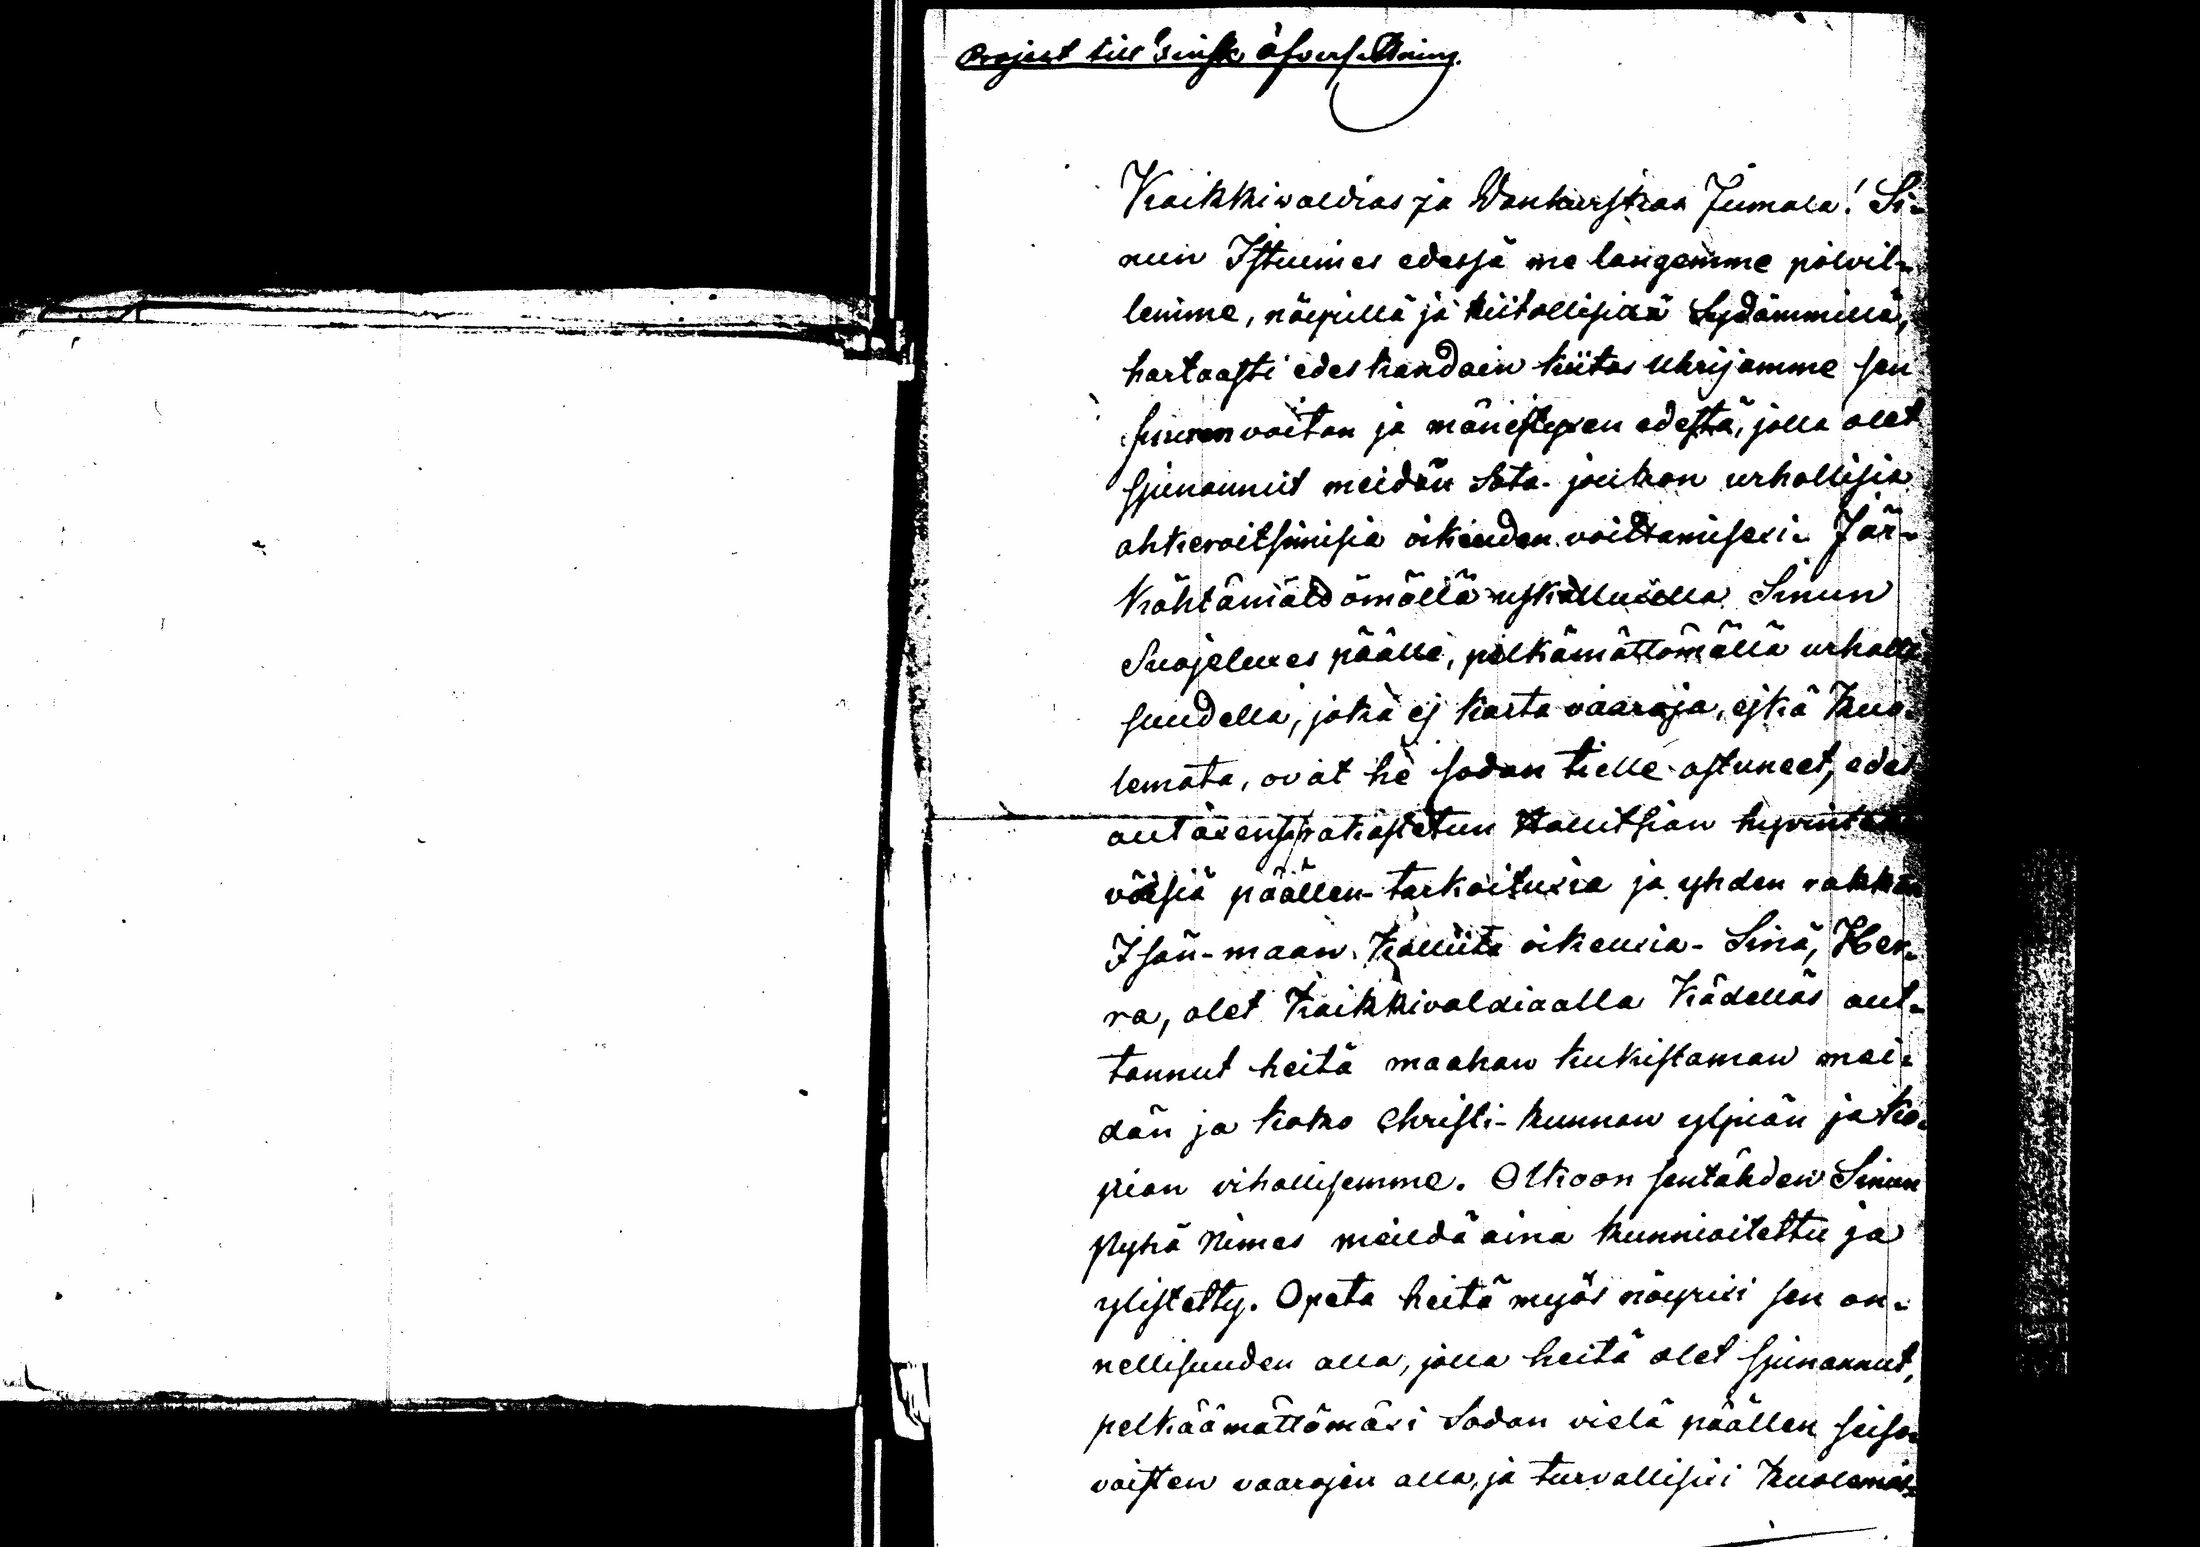 Project till finsk öfversättning.
Kaikkiwaldias ja Wanhurskas Jumala! Si-
nun Istuimes edessä me langemme polvil-
lemme, nöyrillä ja kiitollisilla Sydämmillä,
hartaasti edeskandain kiitos Uhrijamme sen
suuren voiton ja mänestyxen edestä, jolla olet
siunannut meidän Sota-joukon urhollisia
ahkeroitsimisia oikeuden voittamisexi. Jär-
kähtämäldömällä uskalluxella Sinun
Suojeluxes päälle, pelkämättömällä urholli
suudella, joka ej karta vaaroja, ejkä Kuo-
lemata, ovat he sodan tielle astuneet, edes
auttaxensa rakastetun Hallitsian hyvintah
võisiä päällen-tarkoituxia ja yhden rakkan
Isän-maan kalliita oikeuxia. Sinä, Her-
ra, olet kaikkivaldiaalla Kädelläs aut-
tannut heitä maahan kukistaman mei-
dän ja koko Christi-kunnan ylpiän ja ko-
pian vihollisemme. Olkoon sentähden Sinun
Pyhä Nimes meildä aina kunnioitettu ja
ylistetty. Opeta heitä myös nöyrixi sen on-
nellisuuden alla, jolla heitä olet siunannut,
pelkäämättömäxi Sodan vielä päällen seiso-
voisten vaarojen alla, ja turvallisixi Kuolemas-